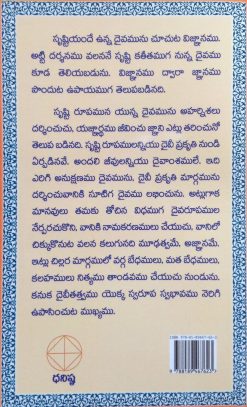 సృష్టియందే ఉన్న దైవమును చూచుట విజ్ఞానము.
అట్టి దర్శనము వలననే సృష్టి కతీతముగ నున్న దైవము
కూడ తెలియబడును. విజ్ఞానము ద్వారా జ్ఞానము
పొందుట ఉపాయముగ తెలుపబడినది.
సృష్టి రూపమున యున్న దైవమును అహర్నిశలు
దర్శించుచు, యజ్ఞార్థము జీవించు జ్ఞాని ఎట్లు తరించునో
తెలుప బడినది. సృష్టి రూపములన్నియు దైవీ ప్రకృతి నుండి
ఏర్పడినవే. అందలి జీవులన్నియు దైవాంశములే. ఇది
ఎరిగి అనుక్షణము దైవమును, దైవీ ప్రకృతి మార్గమున
దర్శించువానికి సూటిగ దైవము లభించును. అట్లుగాక
మానవులు తమకు తోచిన విధముగ దైవరూపముల
నేర్పరచుకొని, వానికి నామకరణములు చేయుచు, వానిలో
చిక్కుకొనుట వలన కలుగునది మూఢత్వమే, అజ్ఞానమే.
ఇట్లు చిల్లర మార్గములో వర్గ బేధములు, మత బేధములు,
కలహములు నిత్యము తాండవము చేయుచు నుండును.
కనుక దైవీతత్వము యొక్క స్వరూప స్వభావము నెరిగి
ఉపాసించుట ముఖ్యము.
ధనిష్ఠ